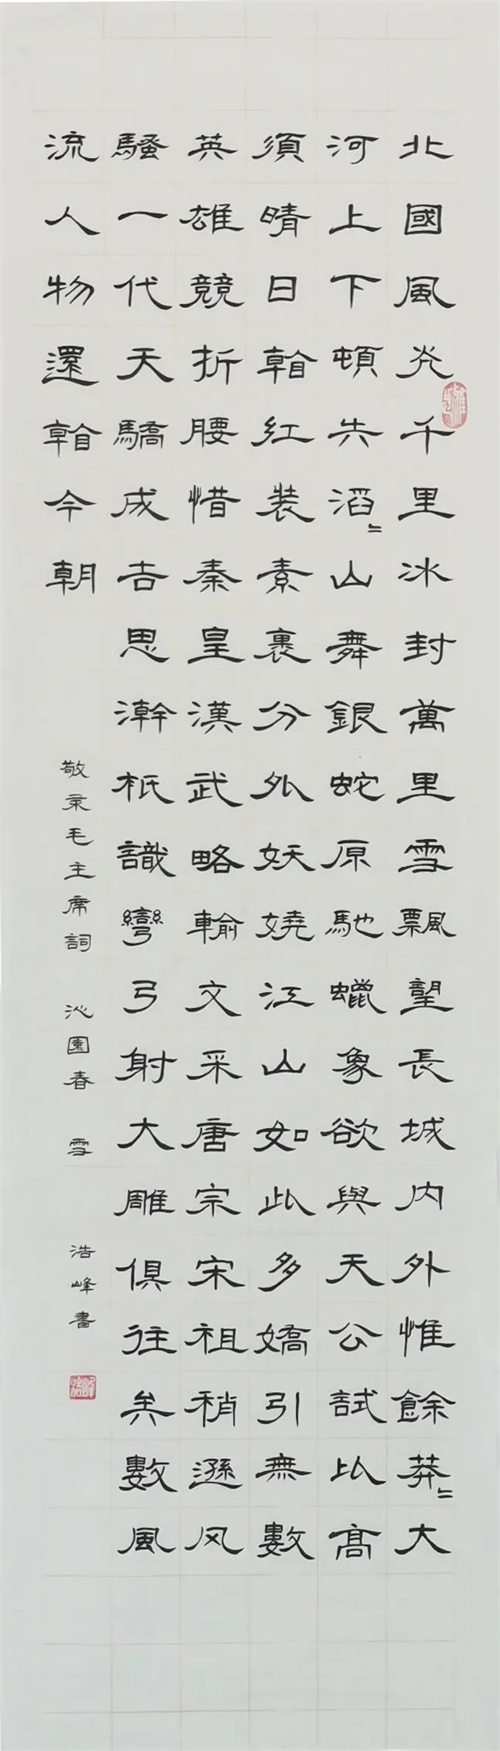 北國風光千里冰封萬里雪飄望長城内外惟餘莽〻大
河上下頓失滔〻山舞銀蛇原馳蠟象欲與天公試比高
須晴日看紅装素裹分外妖嬈江山如此多嬌引無數
英雄競折腰惜秦皇漢武略輸文采唐宗宋祖稍遜风
騷一代天驕成吉思澣衹識彎弓射大雕俱往矣數風
流人物還看今朝
敬录毛主席詞 沁園春 雪 浩峰書